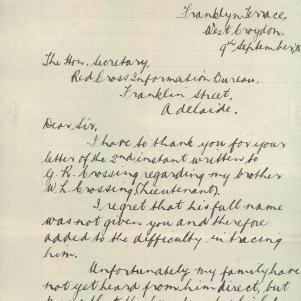 Franklyn Terrace,
West Croydon,
9th September,
The Hon. Secretary,
Red Cross Information Bureau.
Franklin Street,
Adelaide.
Dear Sir,
I have to thank you for your
letter of the 2nd instant written to
G. R. Crossing regarding my brother
W. L. Crossing (Lieutenant).
I regret that his full name
was not given you and therefore
added to the difficulty in tracing
him.
Unfortunately my family have
not yet heard from him direct, but